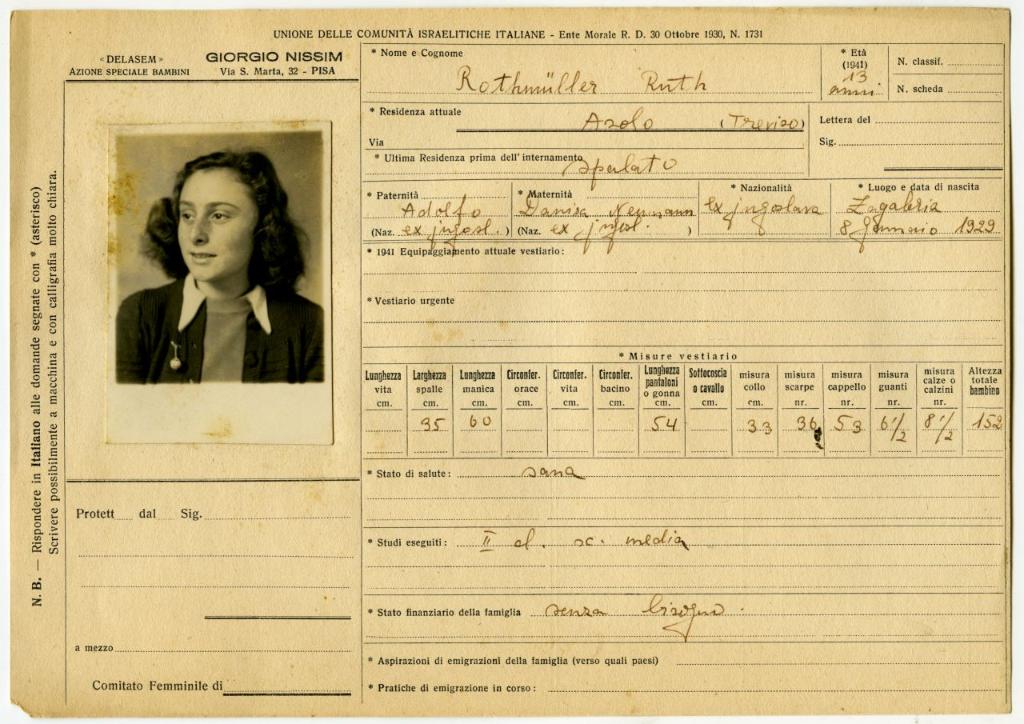 UNIONE DELLE COMUNITÀ ISRAELITICHE ITALIANE - Ente Morale R. D. 30 Ottobre 1930, N. 1731
« DELASEM »
AZIONE SPECIALE BAMBINI
GIORGIO NISSIM
Via S. Marta, 32 - PISA
* Nome e Cognome
Rothmüller Ruth
* Età
(1941)
13
anni
N. classif.
N. scheda
* Residenza attuale
Asolo (Treviso)
Via
Lettera del
Sig.
* Ultima Residenza prima dell'internamento
Spalato
* Paternità
Adolfo
(Naz. ex jugosl. )
* Maternità
Danica Neumann
(Naz. ex jugosl. )
* Nazionalità
ex jugoslava
* Luogo e data di nascita
Zagabria
8 Gennaio 1929
* 1941 Equipaggiamento attuale vestiario :
* Vestiario urgente
* Misure vestiario
Lunghezza vita cm.
Larghezza spalle cm. 35
Lunghezza manica cm. 60
Circonfer. orace cm.
Circonfer. vita cm.
Circonfer. bacino cm.
Lunghezza pantaloni o gonna cm. 54
Sottocoscia o cavallo cm.
misura collo cm. 33
misura scarpe nr. 36
misura cappello nr. 53
misura guanti nr. 6 1/2
misura calze o calzini nr. 8 1/2
Altezza totale bambino 152
* Stato di salute : sana
* Studi eseguiti : II cl. sc. media
* Stato finanziario della famiglia senza bisogno.
* Aspirazioni di emigrazioni della famiglia (verso quali paesi)
* Pratiche di emigrazione in corso :
Protett dal Sig.
a mezzo
Comitato Femminile di
N. B. — Rispondere in Italiano alle domande segnate con * (asterisco)
Scrivere possibilmente a macchina e con calligrafia molto chiara.